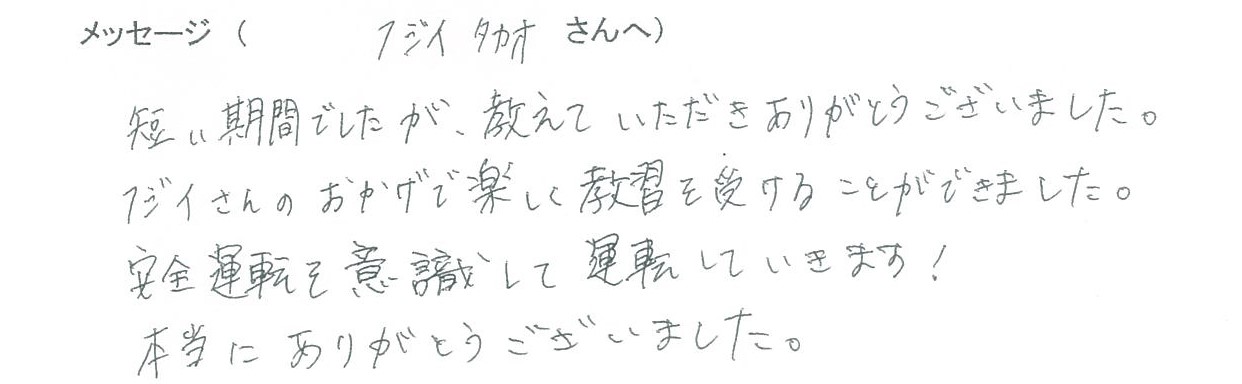 メッセージ（ フジイ タカオ さんへ）
短い期間でしたが、教えていただきありがとうございました。
フジイさんのおかげで楽しく教習を受けることができました。
安全運転を意識して運転していきます！
本当にありがとうございました。